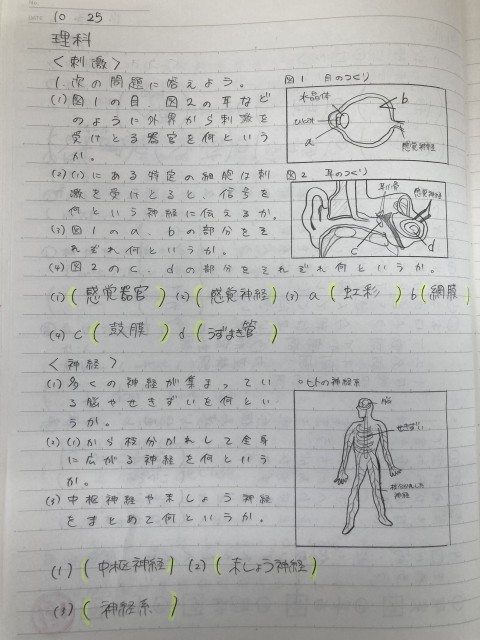 No.
DATE 10 25
理科
＜刺激＞
1. 次の問題に答えよう。
(1) 図1の目、図2の耳など
のように外界から刺激を
受けとる器官を何という
か。
(2) (1)にある特定の細胞は刺
激を受けとると、信号を
何という神経に伝えるか。
(3) 図1のa、bの部分をそ
れぞれ何というか。
(4) 図2のc、dの部分をそれぞれ何というか。
図1 目のつくり
水晶体
ひとみ
a
b
感覚神経
図2 耳のつくり
耳小骨
感覚神経
c
d
(1) (感覚器官) (2) (感覚神経) (3) a (虹彩) b (網膜)
(4) c (鼓膜) d (うずまき管)
＜神経＞
(1) 多くの神経が集まってい
る脳やせきずいを何とい
うか。
(2) (1)から枝分かれして全身
に広がる神経を何という
か。
(3) 中枢神経や末しょう神経
をまとめて何というか。
○ヒトの神経系
脳
せきずい
枝分かれした
神経
(1) (中枢神経) (2) (末しょう神経)
(3) (神経系)